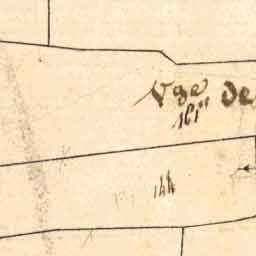 Vge de
161
144